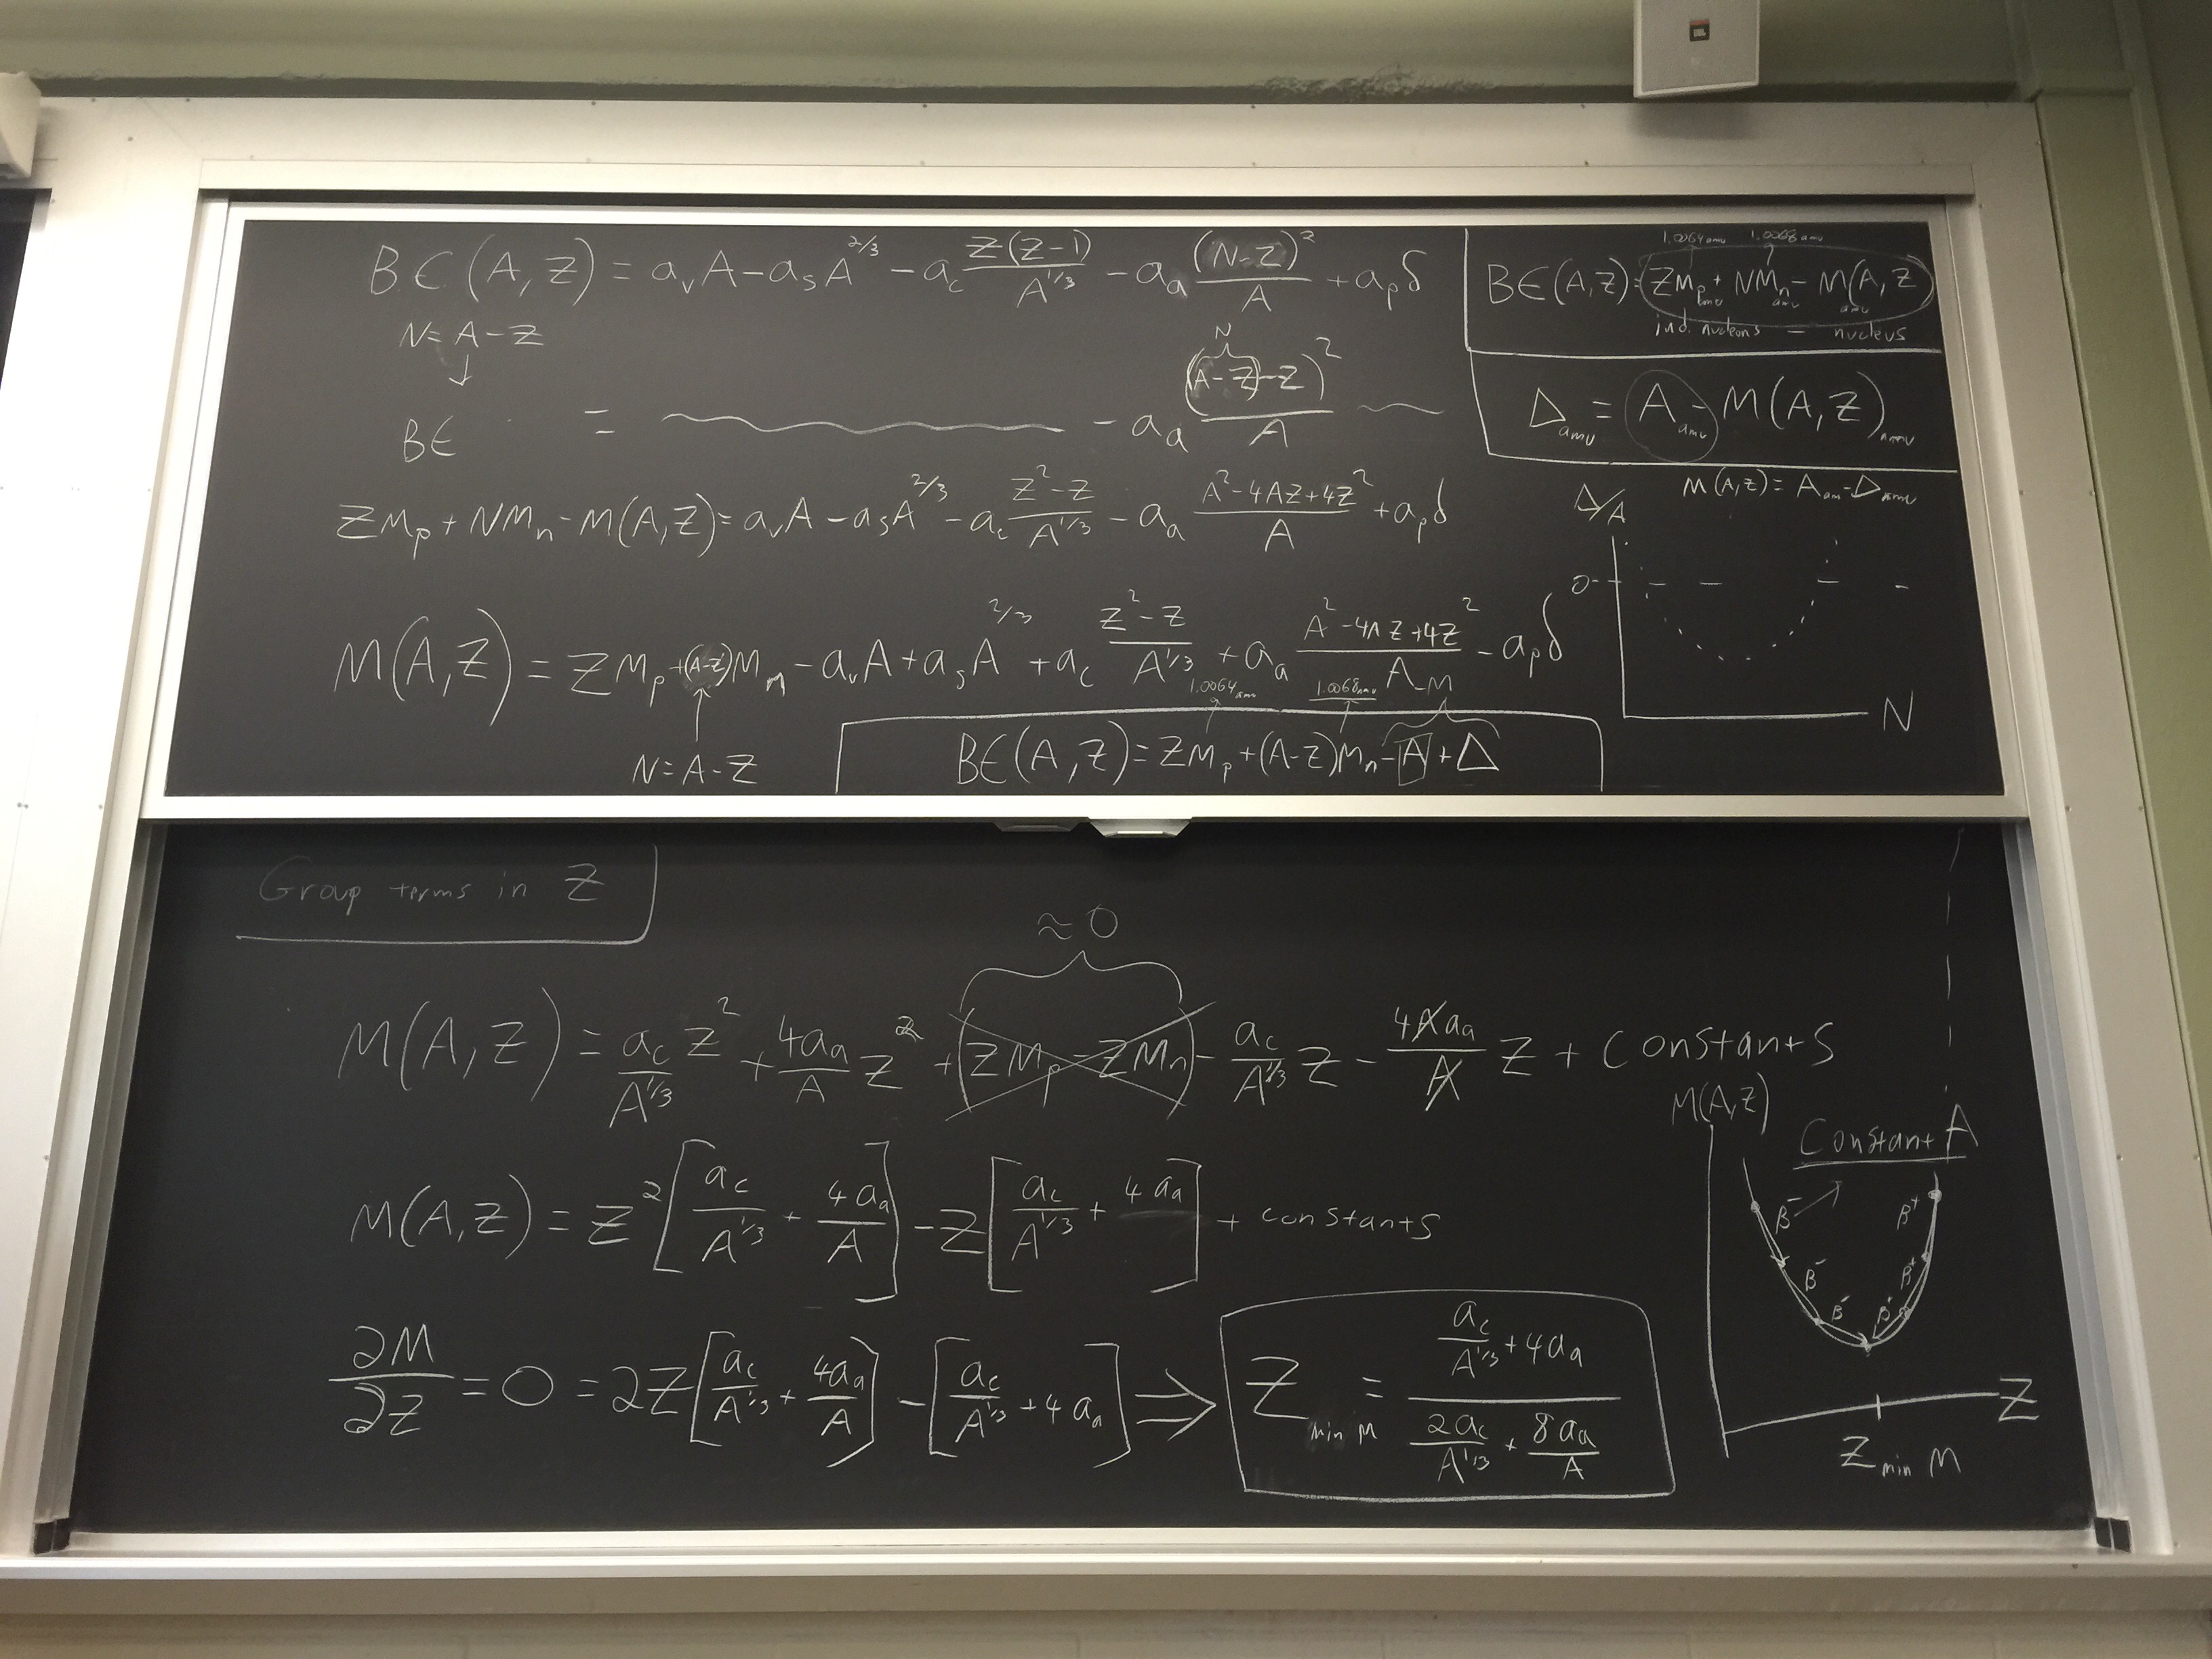 BE(A,Z) = a_v A - a_s A^{2/3} - a_c \frac{Z(Z-1)}{A^{1/3}} - a_a \frac{(N-Z)^2}{A} + a_p δ
N = A - Z
↓
BE = ~~~ - a_a \frac{(A-Z)-Z)^2}{A} ~
N
ZM_p + NM_n - M(A,Z) = a_v A - a_s A^{2/3} - a_c \frac{Z^2-Z}{A^{1/3}} - a_a \frac{A^2-4AZ+4Z^2}{A} + a_p δ
M(A,Z) = ZM_p + (A-Z)M_n - a_v A + a_s A^{2/3} + a_c \frac{Z^2-Z}{A^{1/3}} + a_a \frac{A^2-4AZ+4Z^2}{A} - a_p δ
↑
N = A - Z
1.0064 amu 1.0068 amu -M
BE(A,Z) = ZM_p + (A-Z)M_n - A + Δ
1.0064 amu 1.0068 amu
BE(A,Z) = ZM_p + NM_n - M(A,Z)
amu amu amu
ind. nucleons - nucleus
Δ_{amu} = A_{amu} - M(A,Z)_{amu}
M(A,Z) = A_{am} - Δ_{amu}
Δ/A
0
N
Group terms in Z
≈ 0
M(A,Z) = \frac{a_c}{A^{1/3}} Z^2 + \frac{4a_a}{A} Z^2 + (ZM_p - ZM_n) - \frac{a_c}{A^{1/3}} Z - \frac{4A a_a}{A} Z + Constants
M(A,Z) = Z^2 [\frac{a_c}{A^{1/3}} + \frac{4a_a}{A}] - Z [\frac{a_c}{A^{1/3}} + 4a_a] + constants
\frac{∂M}{∂Z} = 0 = 2Z [\frac{a_c}{A^{1/3}} + \frac{4a_a}{A}] - [\frac{a_c}{A^{1/3}} + 4a_a] ⇒ Z_{min M} = \frac{\frac{a_c}{A^{1/3}} + 4a_a}{\frac{2a_c}{A^{1/3}} + \frac{8a_a}{A}}
M(A,Z)
Constant A
β^- β^+
β^- β^+
β^- β^+
Z
Z_{min M}